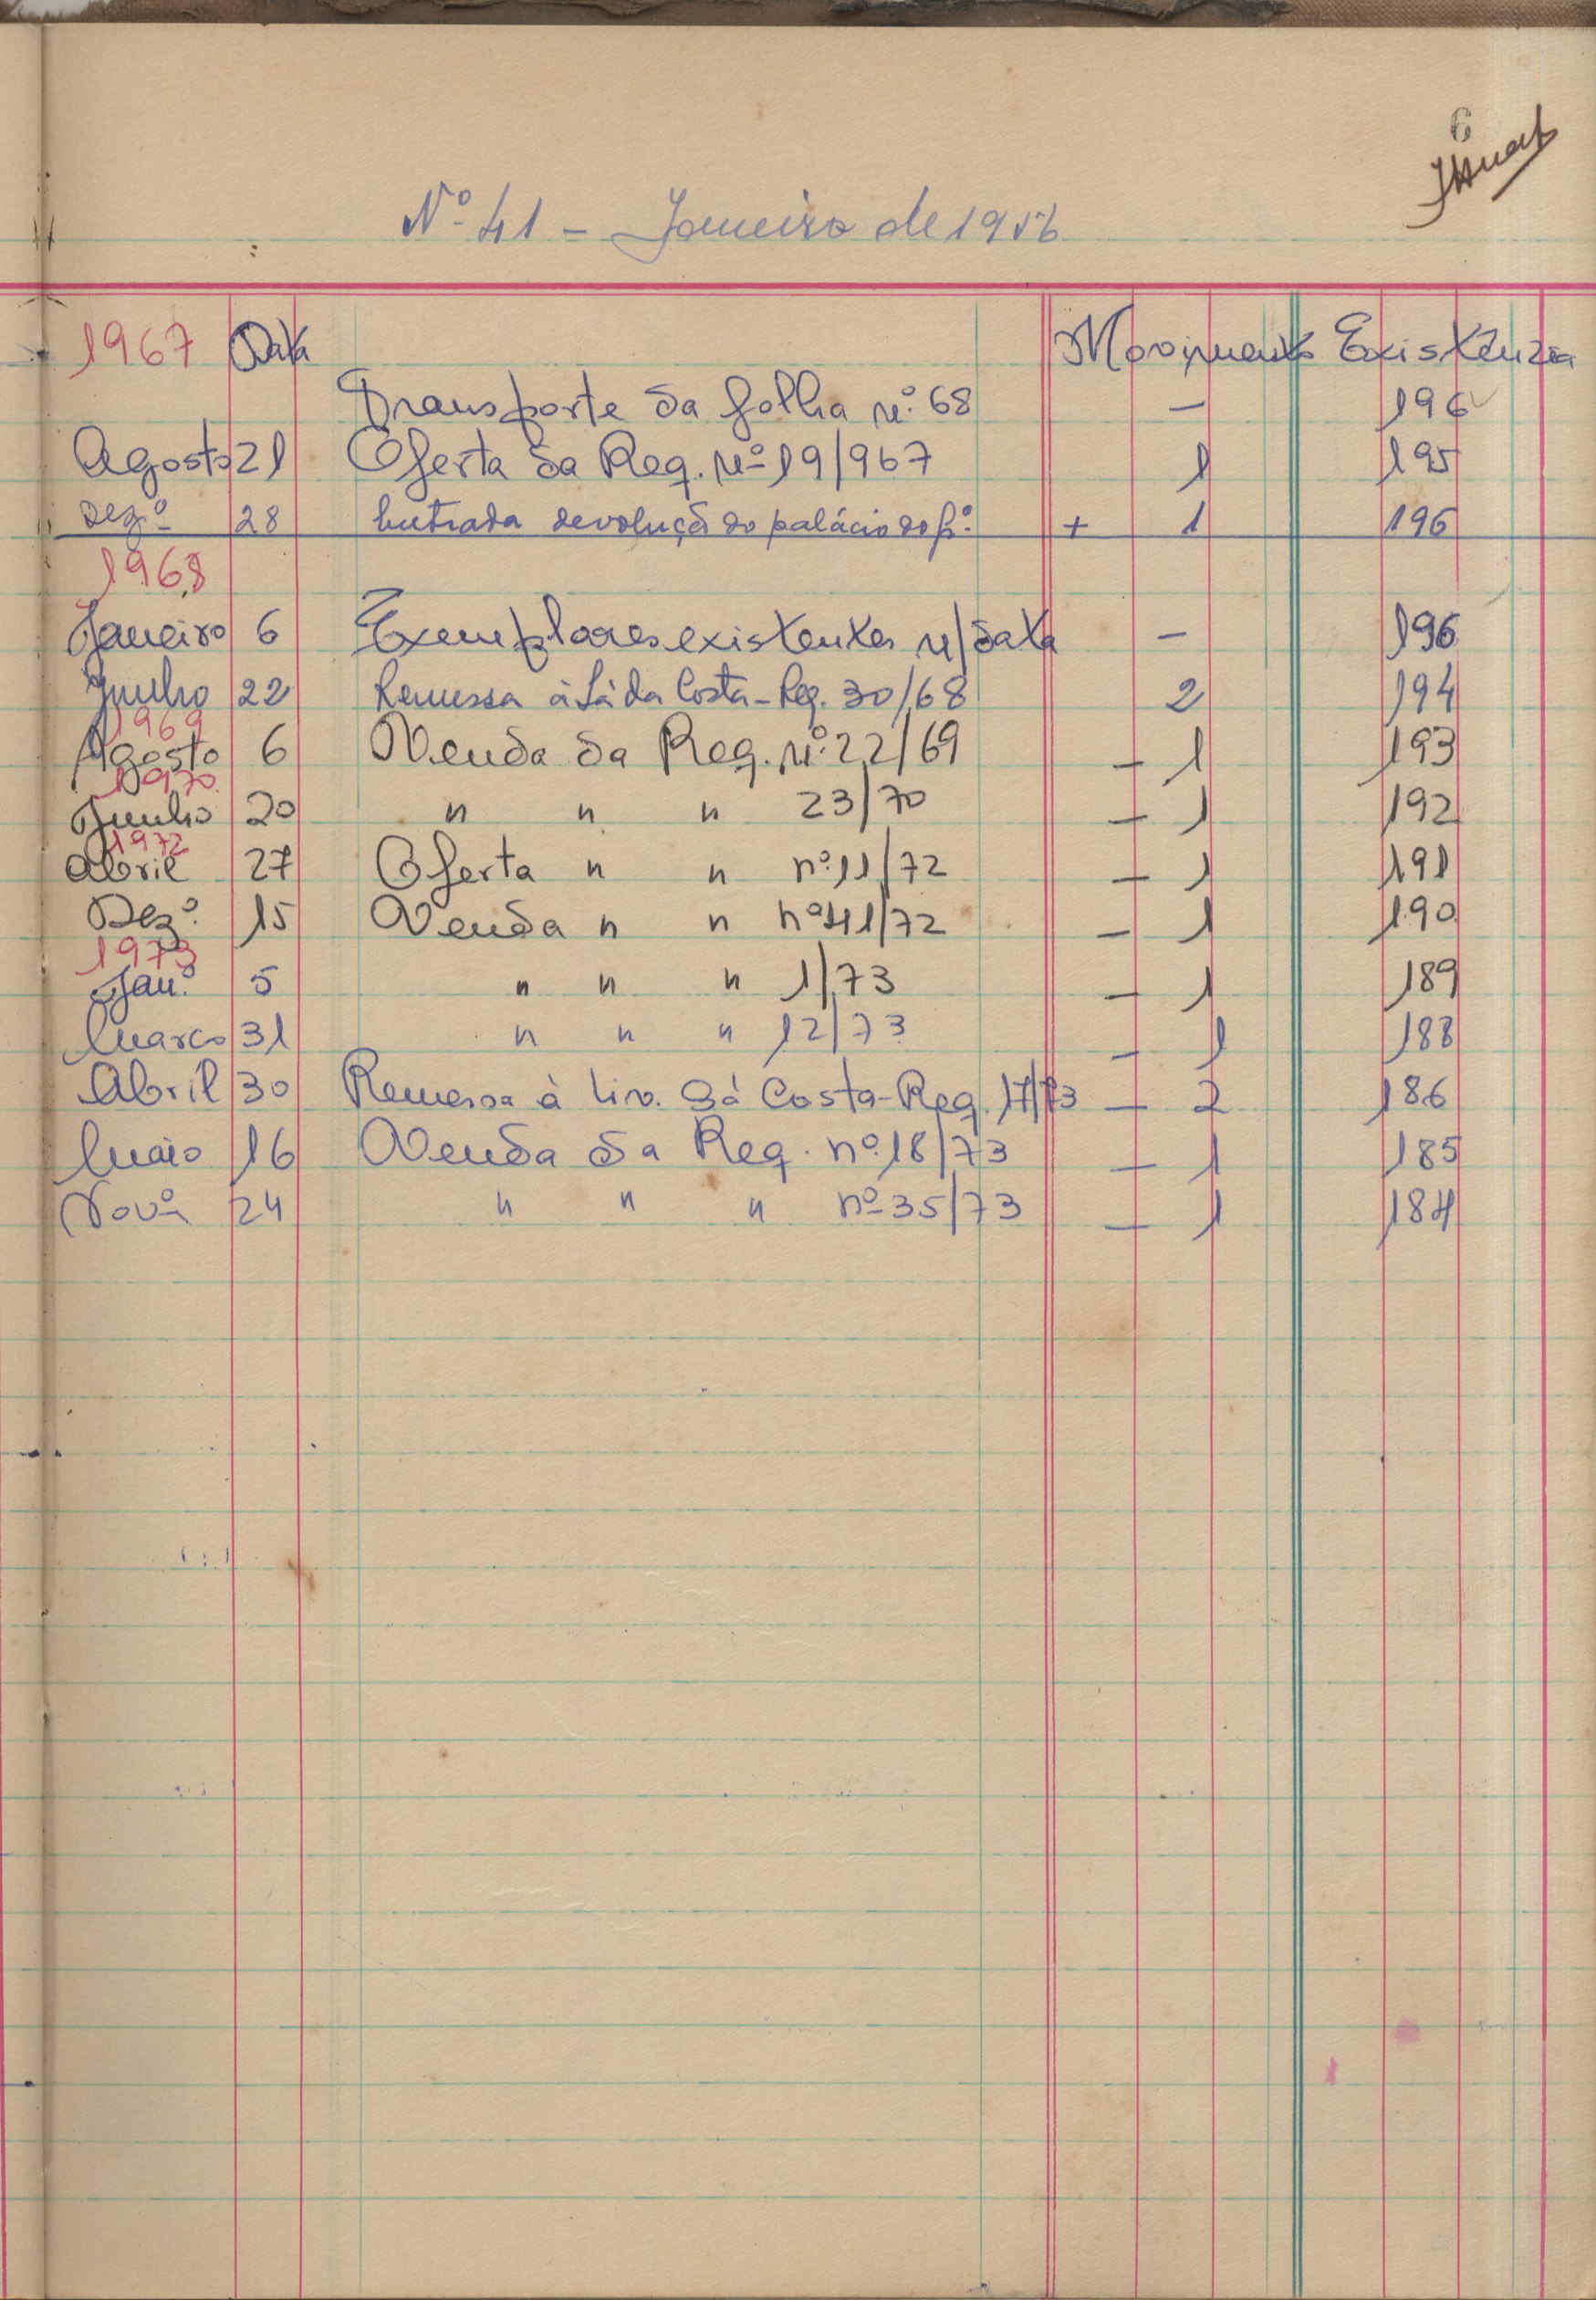 6
Nº 41 - Janeiro de 1956
1967 Data Movimento Existência
Transporte da folha nº 68 - 196
Agosto 21 Oferta da Req. nº 19/967 1 195
Dezº 28 Entrada devoluçã do palácio do + 1 196
1968
Janeiro 6 Exemplares existentes n/data - 196
Junho 22 Remessa à Sá da Costa - Req. 30/68 2 194
1969
Agosto 6 Venda da Req. nº 22/69 - 1 193
1970
Junho 20 " " " 23/70 - 1 192
1972
Abril 27 Oferta " " nº 11/72 - 1 191
Dezº 15 Venda " " nº 41/72 - 1 190
1973
Janº 5 " " " 1/73 - 1 189
Março 31 " " " 12/73 - 1 188
Abril 30 Remessa à Liv. Sá Costa - Req. 17/73 - 2 186
Maio 16 Venda da Req. nº 18/73 - 1 185
Novº 24 " " " nº 35/73 - 1 184